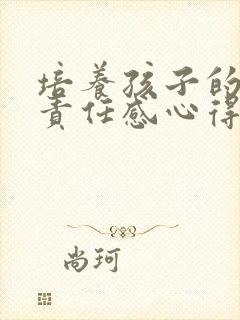 培养孩子的
责任感心得
尚珂